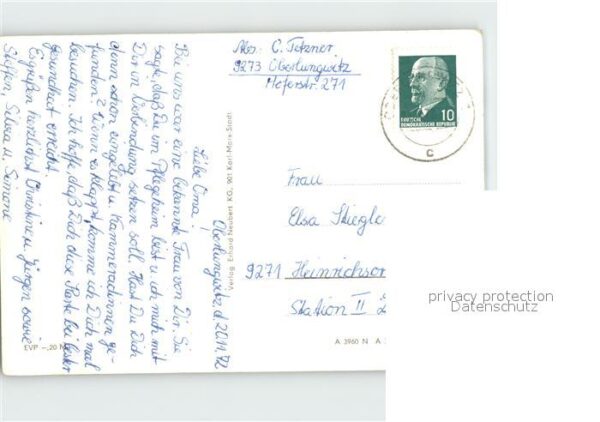 Abs. C. Tetzner
9273 Oberlungwitz
Hoferstr. 271
DEUTSCHE
DEMOKRATISCHE REPUBLIK
10
C
Frau
Elsa Stiegle
9271 Heinrichsor
Station II
Oberlungwitz, d. 20.11.72
Liebe Oma,
Bei uns war eine bekannte Frau von Dir. Sie
sagte, daß Du im Pflegeheim bist u. ich mich mit
Dir in Verbindung setzen soll. Hast Du Dich
denn schon eingelebt u. Kammeradinnen ge-
funden? Wenn es klappt, komme ich Dich mal
besuchen. Ich hoffe, daß Dich diese Karte bei bester
Gesundheit erreicht.
Es grüßen herzlichst Christine u. Jürgen sowie
Steffen, Silvia u. Simone
Verlag Erhard Neubert KG, 901 Karl-Marx-Stadt
EVP –,20 M
A 3960 N A
privacy protection
Datenschutz